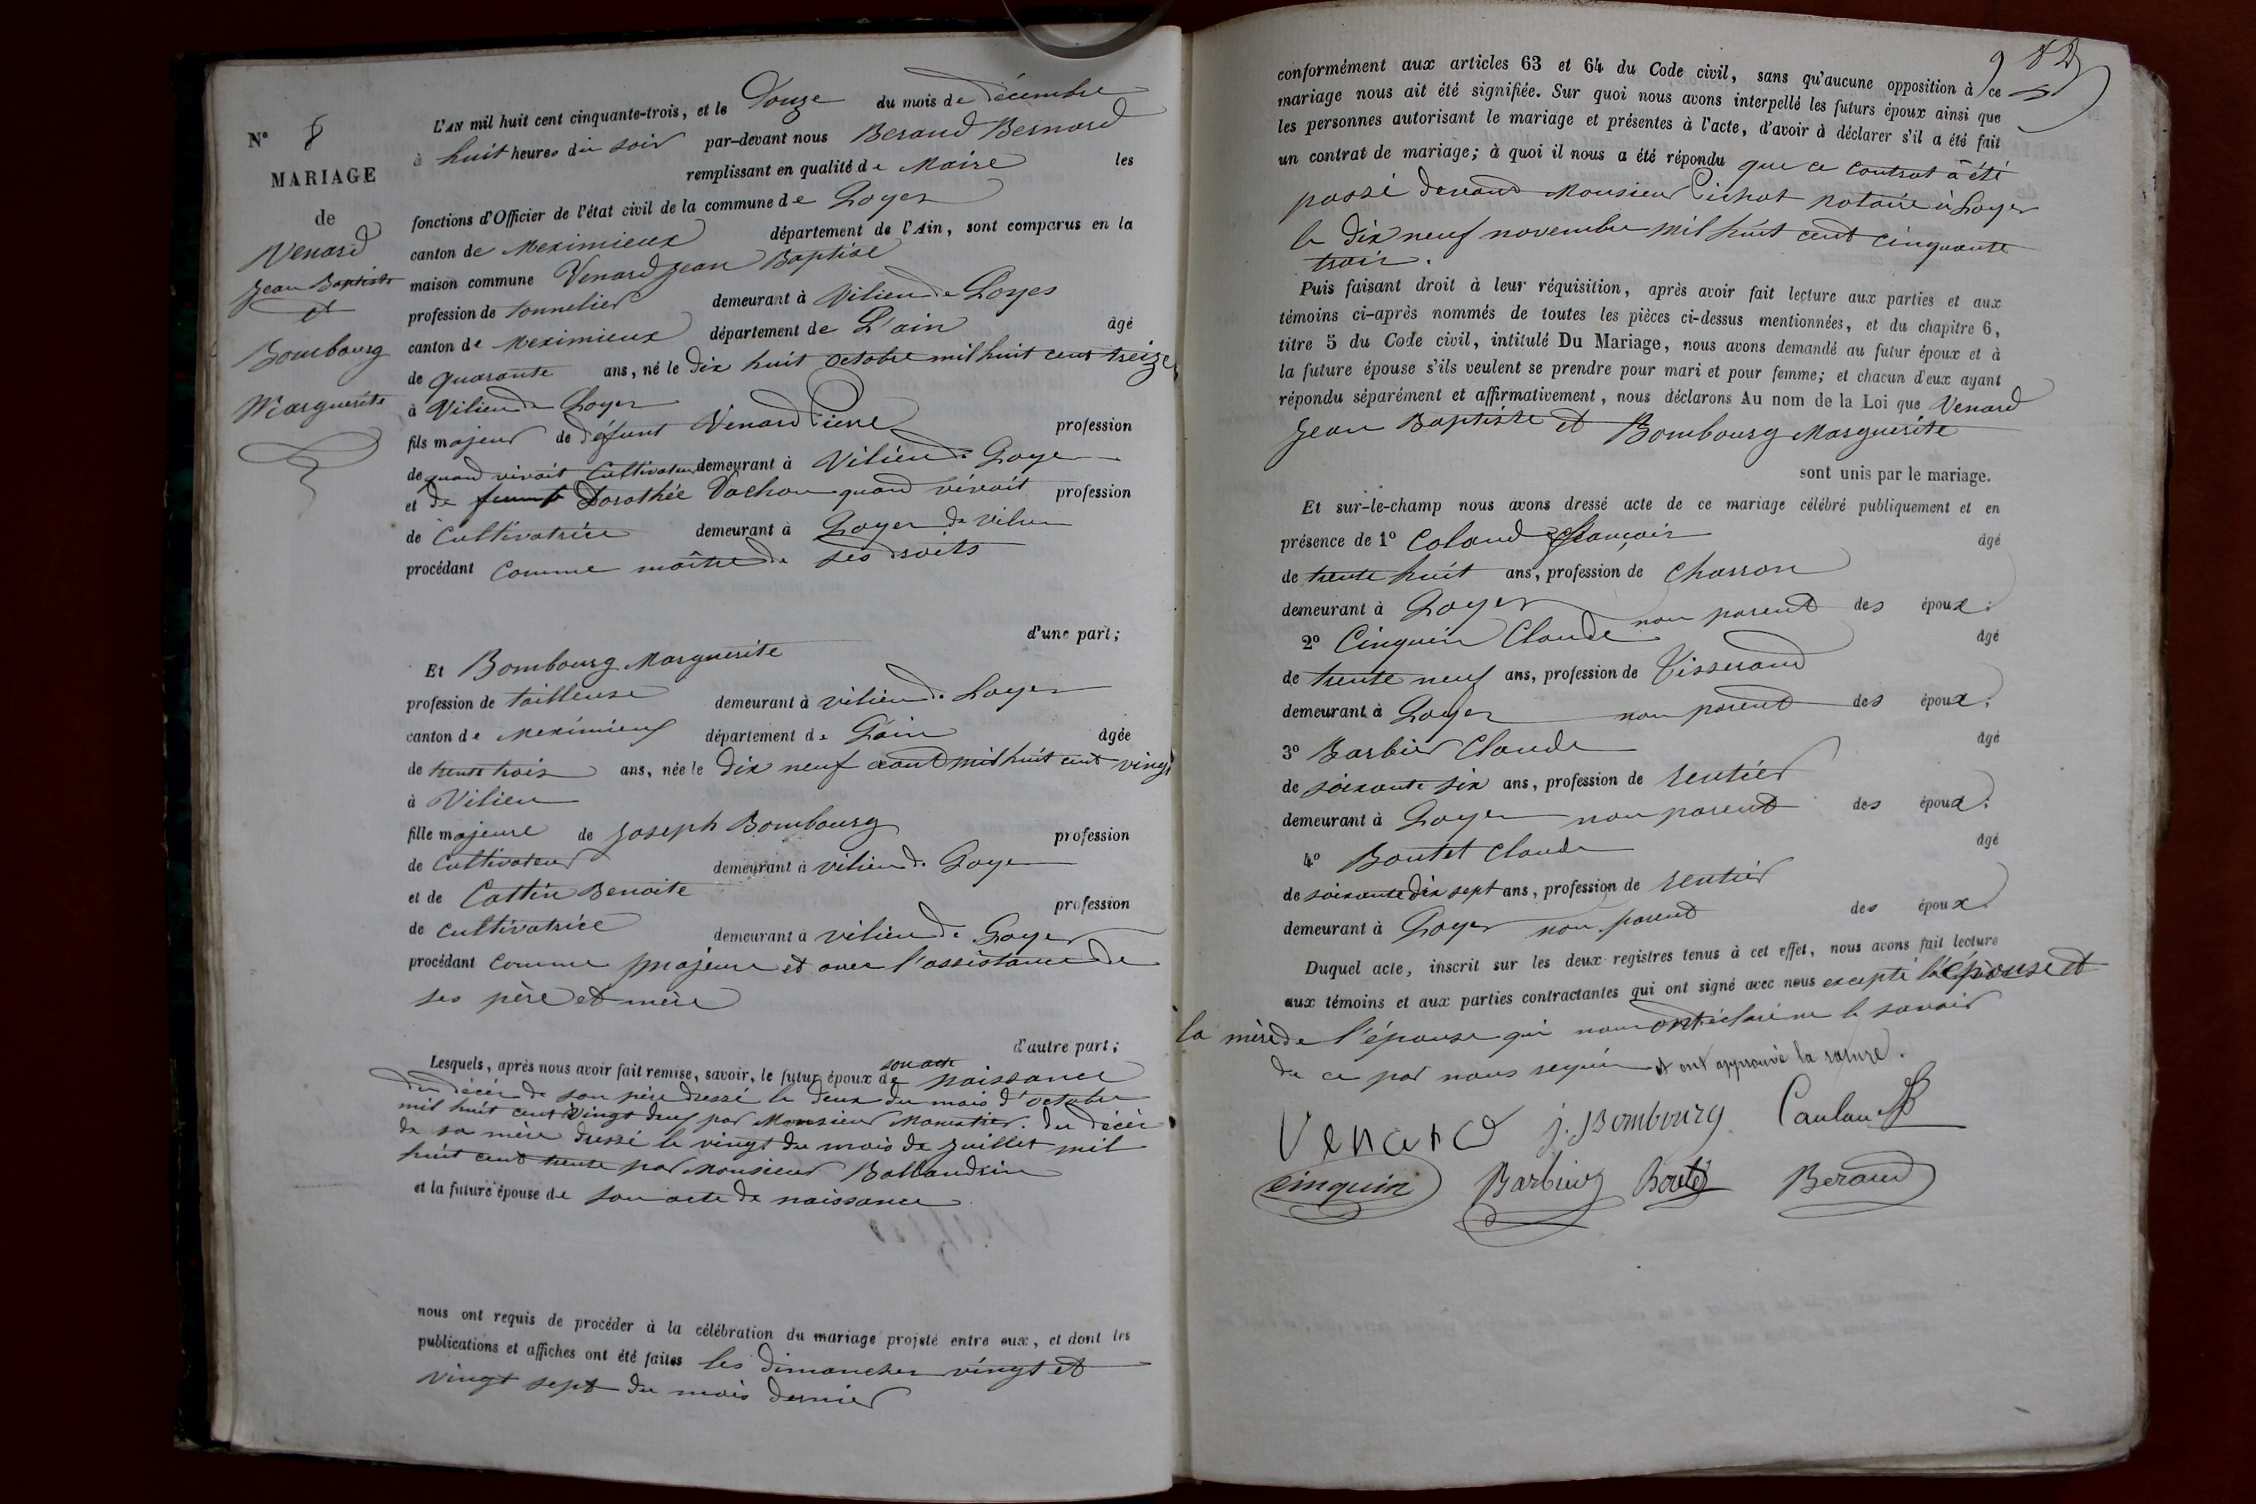 N° 8
MARIAGE
de
Venard
Jean Baptiste
et
Bombourg
Marguerite
L'AN mil huit cent cinquante-trois, et le Douze du mois de décembre
à huit heures du soir par-devant nous Beraud Bernard
remplissant en qualité de Maire les
fonctions d'Officier de l'état civil de la commune de Loyes
canton de Meximieux département de l'Ain, sont comparus en la
maison commune Venard Jean Baptise
profession de tonnelier demeurant à Vilieu de Loyes
canton de Meximieux département de L'ain âgé
de quarante ans, né le dix huit octobre mil huit cent treize
à Vilieu de Loyes
fils majeur de défunt Venard Pierre profession
de quand vivait Cultivateur demeurant à Vilieu de Loyes
et de Dorothée Vachon quand vivait profession
de Cultivatrice demeurant à Loyes de Vilieu
procédant Comme maître de ses droits
d'une part;
Et Bombourg Marguerite
profession de tailleuse demeurant à vilieu de Loyes
canton de Meximieux département de L'ain âgée
de trente trois ans, née le dix neuf aout mil huit cent vingt
à Vilieu
fille majeure de Joseph Bombourg profession
de Cultivateur demeurant à vilieu de Loyes
et de Cottin Benoite profession
de cultivatrice demeurant à vilieu de Loyes
procédant comme majeure et avec l'assistance de
ses père et mère
d'autre part;
Lesquels, après nous avoir fait remise, savoir, le futur époux de son acte naissance
du décès de son père dressé le deux du mois d'octobre
mil huit cent vingt deux par Monsieur du décès
de sa mère dressé le vingt du mois de Juillet mil
huit cent trente par Monsieur Ballandrin
et la future épouse de son acte de naissance
nous ont requis de procéder à la célébration du mariage projeté entre eux, et dont les
publications et affiches ont été faites les dimanches vingt et
vingt sept du mois dernier
conformément aux articles 63 et 64 du Code civil, sans qu'aucune opposition à ce
mariage nous ait été signifiée. Sur quoi nous avons interpellé les futurs époux ainsi que
les personnes autorisant le mariage et présentes à l'acte, d'avoir à déclarer s'il a été fait
un contrat de mariage; à quoi il nous a été répondu que ce contrat a été
passé devant Monsieur Pichat notaire à Loyes
le dix neuf novembre mil huit cent cinquante
trois.
Puis faisant droit à leur réquisition, après avoir fait lecture aux parties et aux
témoins ci-après nommés de toutes les pièces ci-dessus mentionnées, et du chapitre 6,
titre 5 du Code civil, intitulé Du Mariage, nous avons demandé au futur époux et à
la future épouse s'ils veulent se prendre pour mari et pour femme; et chacun d'eux ayant
répondu séparément et affirmativement, nous déclarons Au nom de la Loi que Venard
Jean Baptiste et Bombourg Marguerite
sont unis par le mariage.
Et sur-le-champ nous avons dressé acte de ce mariage célébré publiquement et en
présence de 1° Coland François âgé
de trente huit ans, profession de Charron
demeurant à Loyes non parent des époux;
2° Cinquin Claude âgé
de trente neuf ans, profession de Tisserand
demeurant à Loyes non parent des époux;
3° Barbier Claude âgé
de soixante six ans, profession de rentier
demeurant à Loyes non parent des époux;
4° Boutet Claude âgé
de soixante dix sept ans, profession de rentier
demeurant à Loyes non parent des époux.
Duquel acte, inscrit sur les deux registres tenus à cet effet, nous avons fait lecture
aux témoins et aux parties contractantes qui ont signé avec nous excepté l'épouse et
la mère de l'épouse qui nous ont déclaré ne le savoir
de ce par nous requis et ont approuvé la rature.
Venard J. Bombourg Caulau
Cinquin Barbier Boutet Beraud